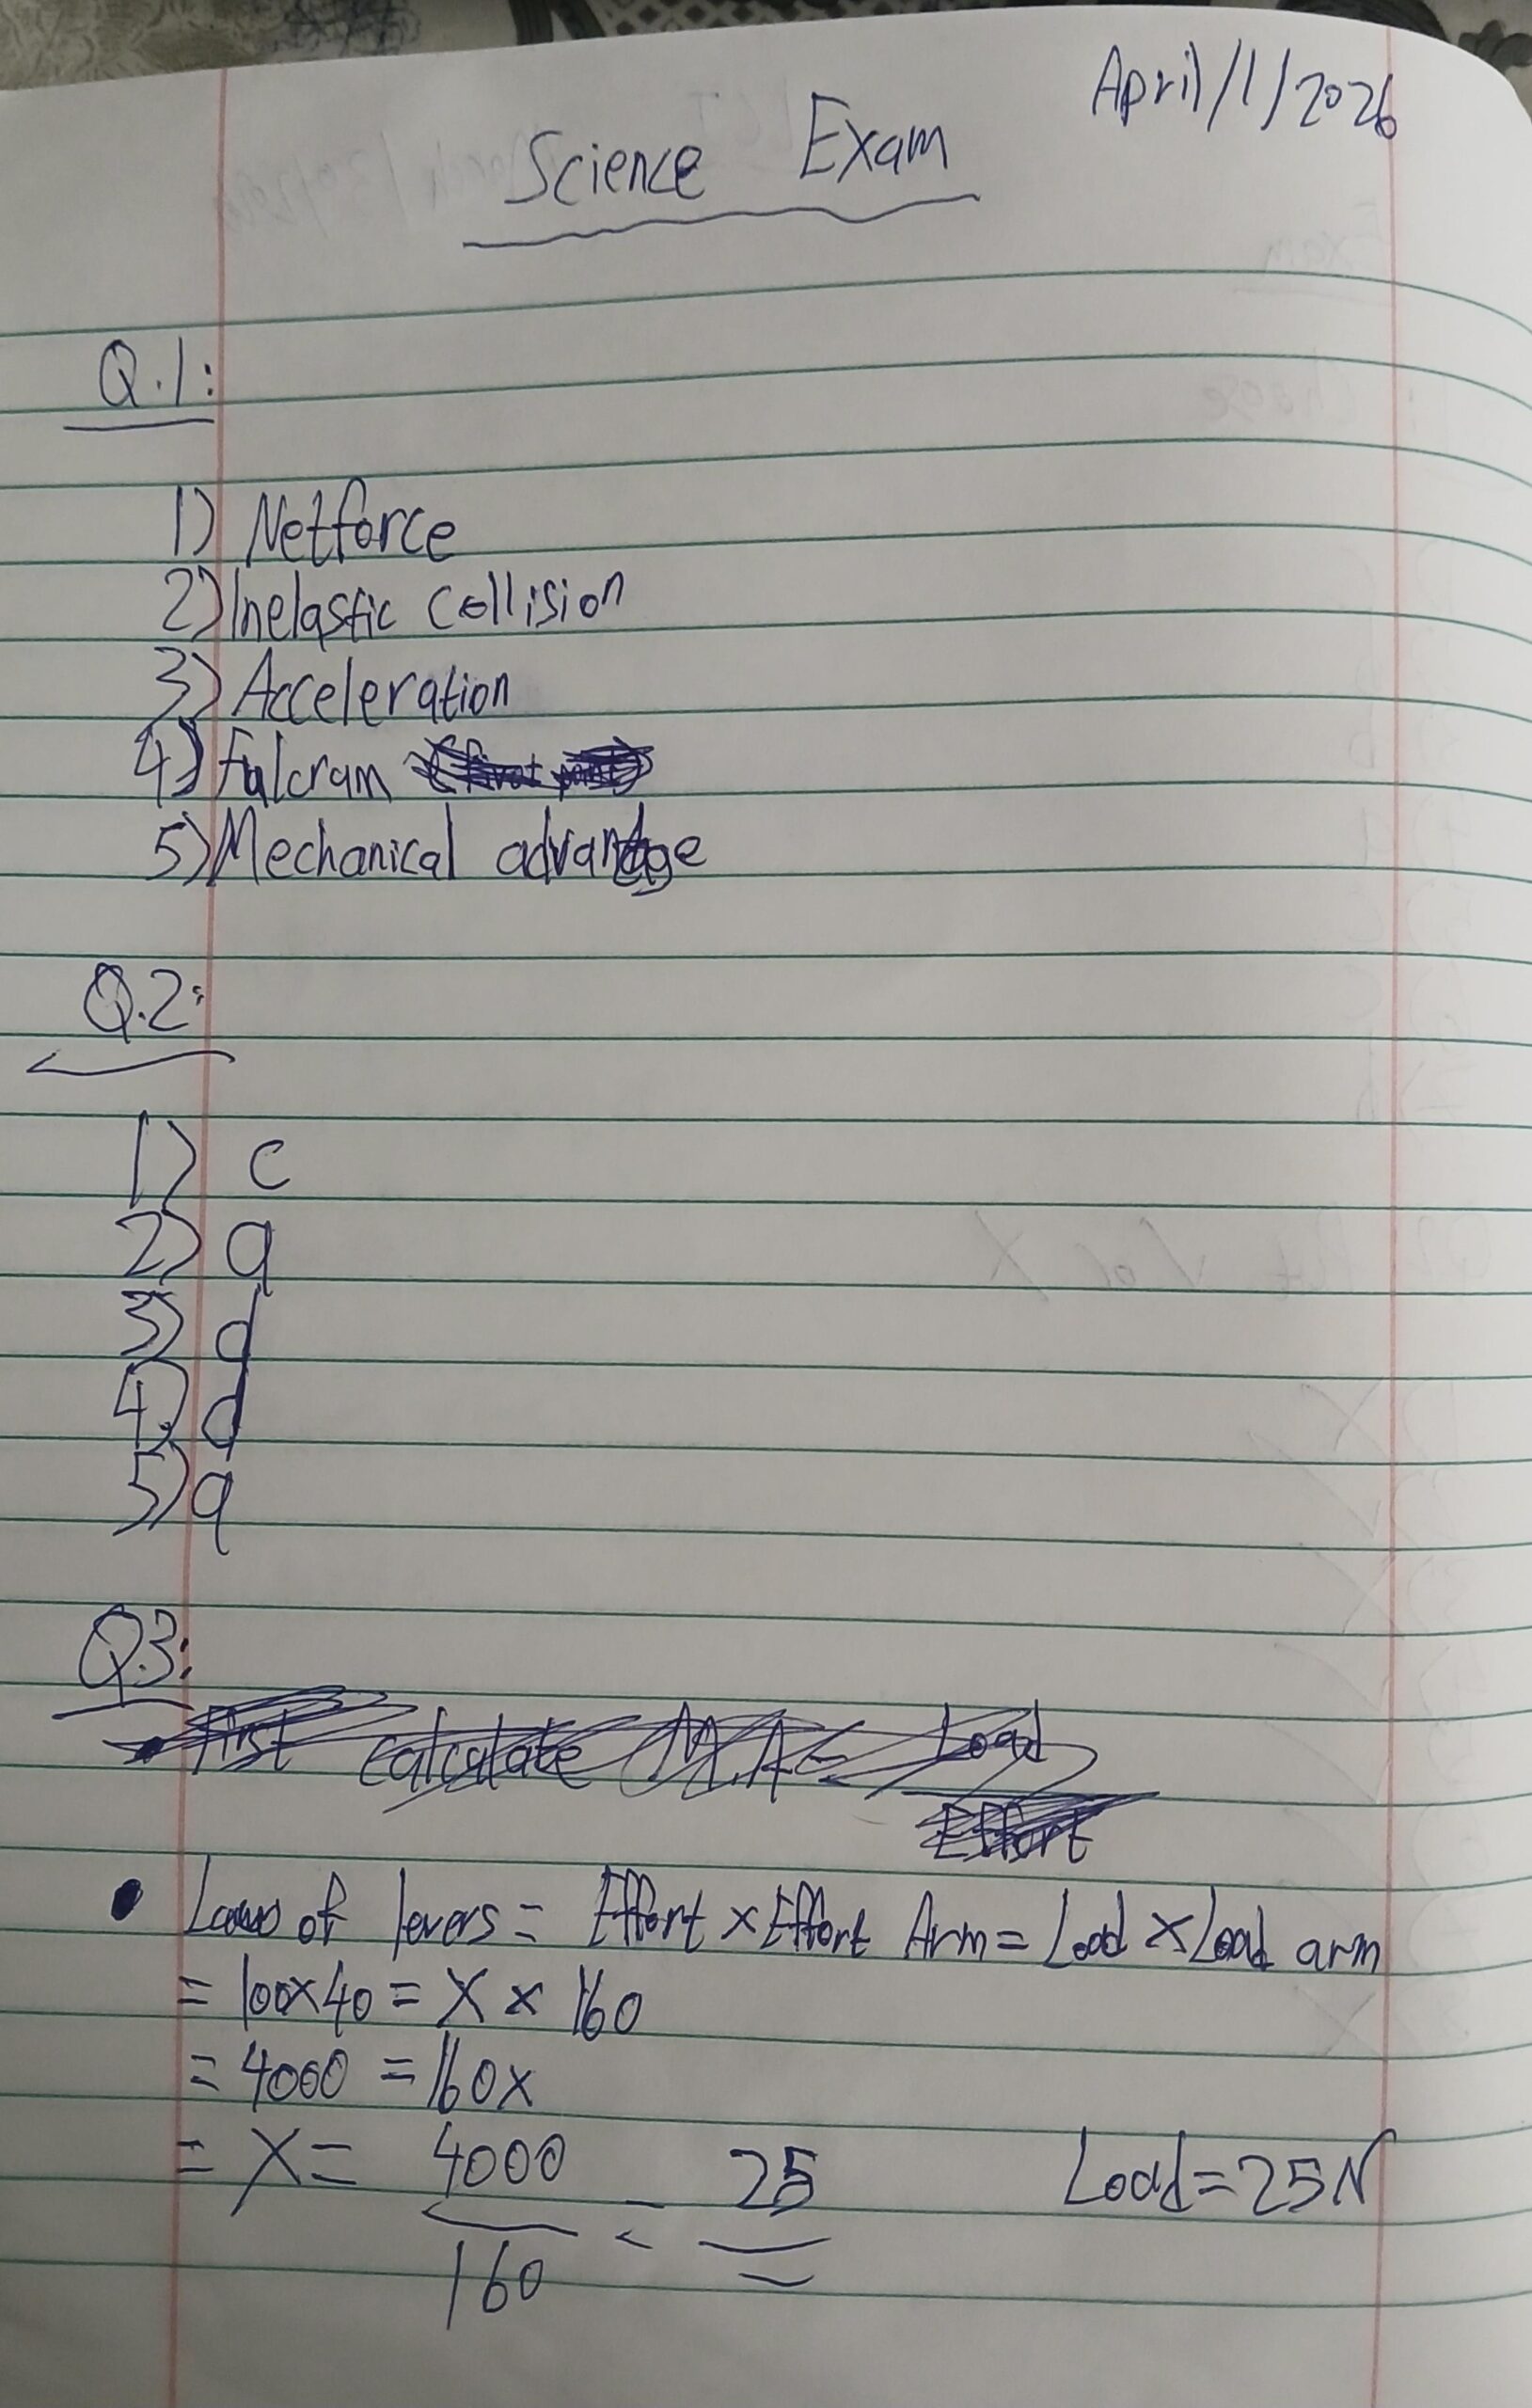 April/1/2026
Science Exam
Q.1:
1) Netforce
2) Inelastic collision
3) Acceleration
4) fulcram
5) Mechanical advantage
Q.2:
1) c
2) a
3) d
4) d
5) a
Q3:
First calculate M.A = Load
Effort
• Laws of levers = Effort × Effort Arm = Load × Load arm
= 100×40 = X × 160
= 4000 = 160x
= X = 4000 = 25 Load = 25N
160